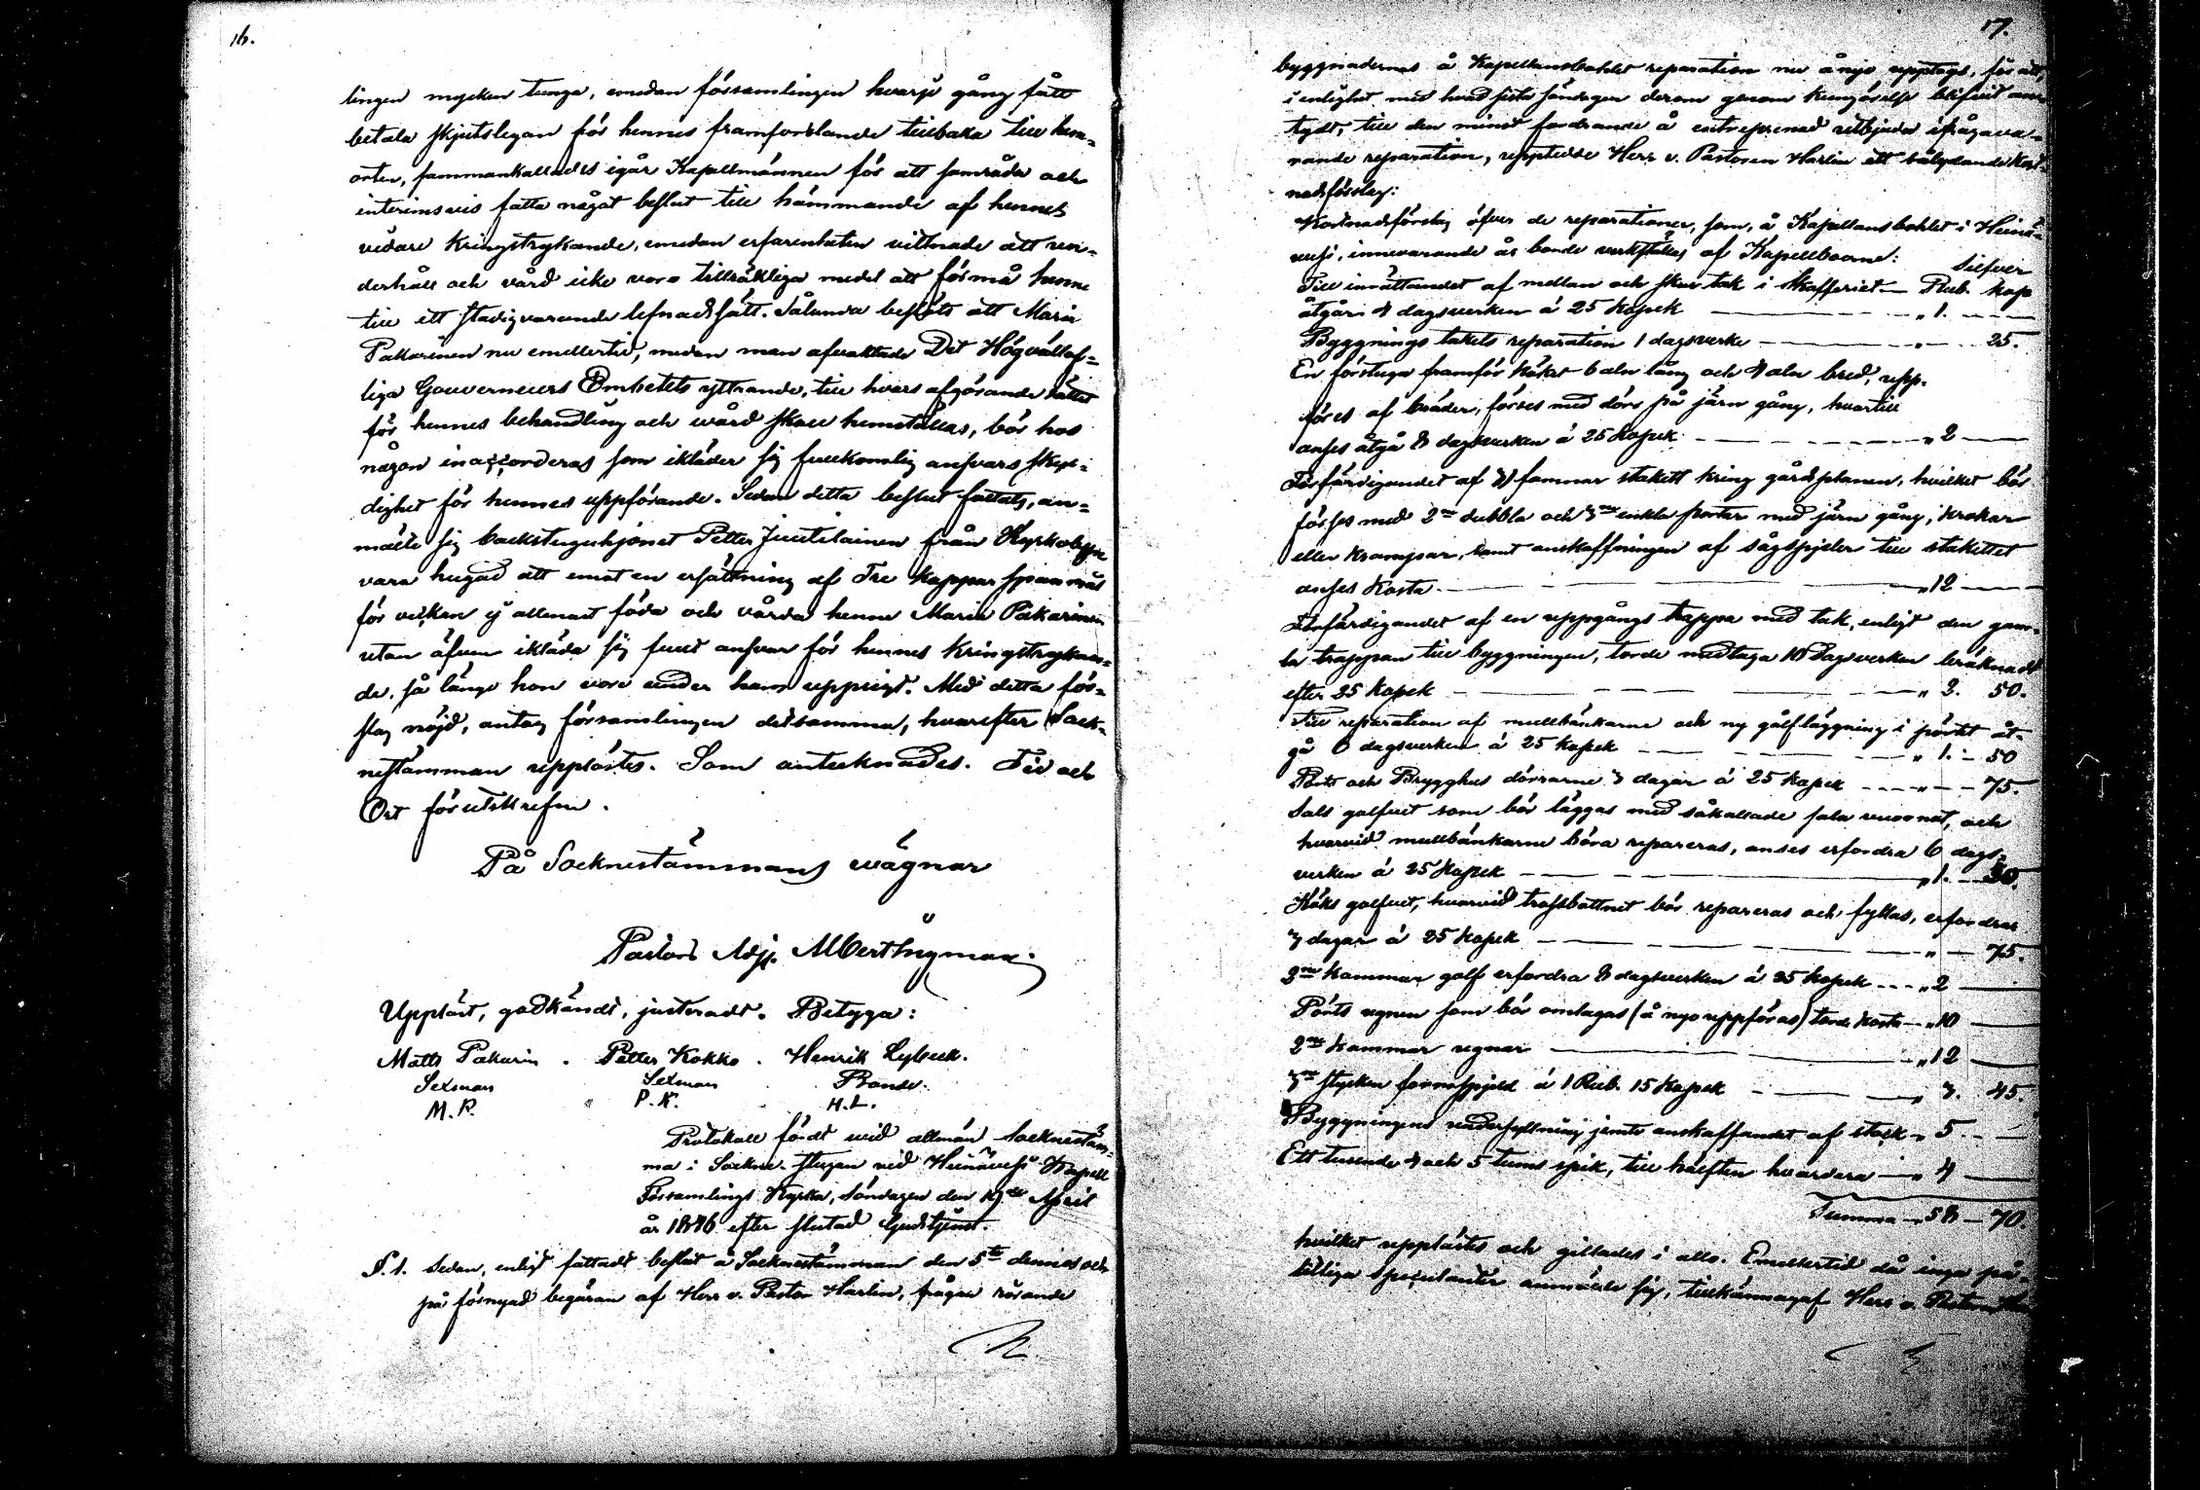 16.
lingen mycken tunga, emedan församlingen hvarje gång fått
betala skjutslegan för hennes framforslande tillbaka till hem-
orten, sammankallades igår Kapellmännen för att samråda och
interimsvis fatta något beslut till hämmande af hennes
vidare kringstrykande, emedan erfarenheten vittnade att un-
derhåll och vård icke voro tillräkliga medel att förmå henne
till ett stadigvarande lefnadssätt. Sålunda beslöts att Maria
Pakarinen nu emellertid, medan man afvaktade Det Högvällof-
liga Gouverneurs Embetets yttrande, till hvars afgörande sättet
för hennes behandling och wård skall hemställas, bör hos
någon inaccorderas som ikläder sig fullkomlig ansvars skyl-
dighet för hennes uppförande. Sedan detta beslut fattats, an-
mälte sig backstuguhjonet Petter Juutilainen från Kyrkobyn
vara hugad att emot en ersättning af Tre kappar spannmål
för veckan ej allenast föda och vårda henne Maria Pakarinen
utan äfven ikläda sig fullt ansvar för hennes kringstrykan-
de, så länge hon vore under hans uppsigt. Med detta för-
slag nöjd, antog församlingen detsamma, hvarefter Sock-
nestämman upplöstes. Som antecknades. Tid och
Ort förutskrefne.
På Socknestämmans wägnar
Pastors Adj. Alb. Thyman.
Uppläst, godkändt, justeradt. Betyga:
Matts Pakarin . Petter Kokko . Henrik Lybeck.
Sexman Sexman Bonde.
M.P. P.K. H.L.
Protokoll fördt wid allmän Socknestäm-
ma i Sockne-stugan wid Heinävesi Kapell
Församlings Kyrka, Söndagen den 19de April
år 1846 efter slutad Gudstjenst.
S. 1. Sedan, enligt fattadt beslut å Socknestämman den 5te dennes och
på förnyad begäran af Herr v. Pastor Harlin, frågan rörande
17.
byggnadernas å Kapellansbohlet reparation nu ånyo upptogs, för att,
i enlighet med hvad sista söndagen derom genom kungörelse blifvit an-
tydt, till den minst fordrande å entreprenad utbjuda ifrågava-
rande reparation, uppteedde Herr v. Pastoren Harlin ett sålydande Kost-
nadsförslag:
Kostnadsförslag öfver de reparationer, som, å Kapellansbohlet i Heinä-
vesi, innevarande år borde verkställas af Kapellboerne: Silfver
Till inrättandet af mellan och skur tak i skafferiet — Rub. kop
åtgår 4 dagsverken á 25 Kopek — " 1. —
Byggnings takets reparation 1 dagsverke — " — 25.
En förstuga framför köket 6 aln lång och 4 aln bred, upp-
föres af bräder, förses med dörr på järn gång, hvartill
anses åtgå 8 dagsverken á 25 Kopek — " 2 —
Förfärdigandet af famnar stakett kring gårdsplanen, hvilket bör
förses med 2ne dubbla och 3ne enkla portar med järn gång, krokar
eller krampor, samt anskaffningen af sågspjeler till stakettet
anses kosta — " 12 —
Förfärdigandet af en uppgångs trappa med tak, enligt den gam-
la trappan till byggningen, torde medtaga 10 Dagsverken beräknadt
efter 25 Kopek — " 2. 50.
Till reparation af mullbänkarne och ny golfläggning i pörtet åt-
gå 6 dagsverken á 25 kopek — " 1. — 50
Pörts och Brygghus dörrarne 3 dagar á 25 kopek — " — 75.
Sals golfvet som bör läggas med såkallade fala, och
hvarvid mullbänkarne böra repareras, anses erfordra 6 dags-
verken á 25 Kopek — " 1. — 50.
Köks golfvet, hvarvid trossbottnet bör repareras och fyllas, erfordrar
3 dagar á 25 kopek — " — 75.
2ne kammar golf erfordra 8 dagsverken á 25 kopek — " 2 —
Pörts ugnen som bör omlagas (å nyo uppföras) torde kosta — " 10 —
2ne kammar ugnar — " 12 —
3ne stycken spjeld á 1 Rub. 15 Kopek — " 3. 45.
Byggningens underfyllning jemte anskaffandet af stock " 5. —
Ett tusende 4 och 5 tums spik, till hälften hvardera — " 4 —
Summa — " 58 — 70.
hvilket upplästes och gillades i allo. Emellertid då inga på-
litliga speculanter anmälde sig, tillkännagaf Herr v. Pastor